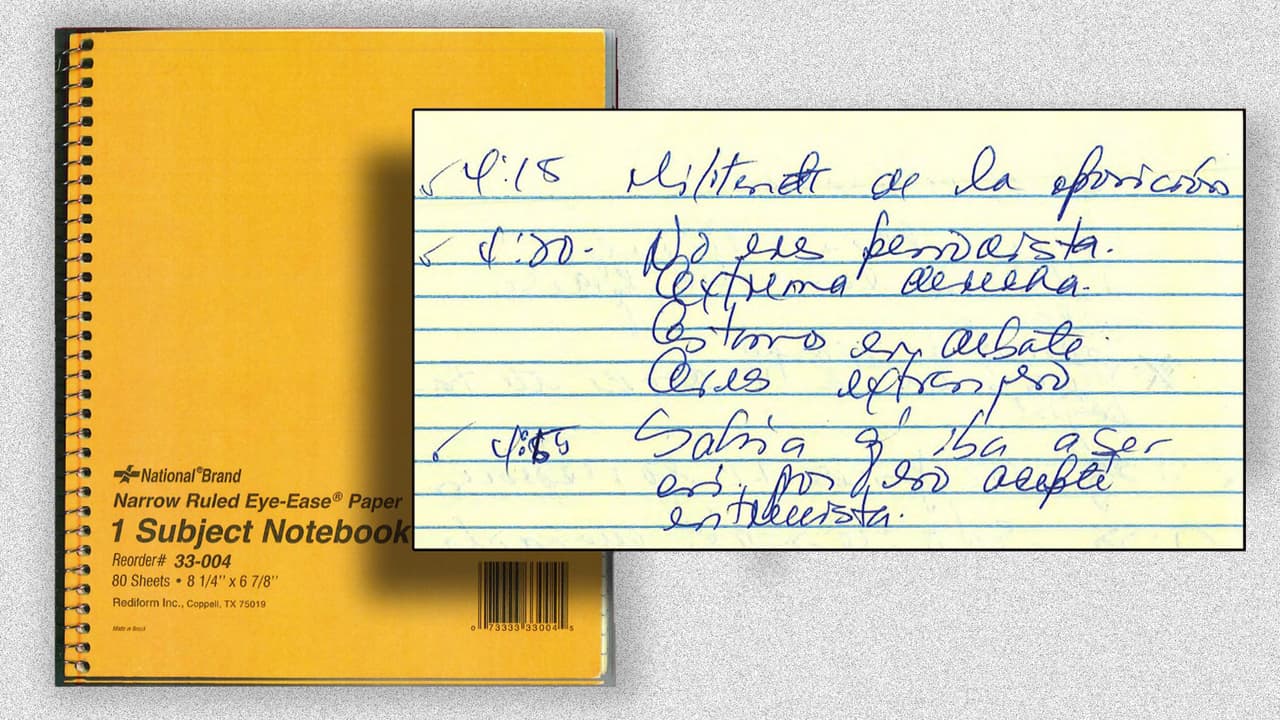 National®Brand
Narrow Ruled Eye-Ease® Paper
1 Subject Notebook
Reorder# 33-004
80 Sheets • 8 1/4" x 6 7/8"
Rediform Inc., Coppell, TX 75019
Made in Brazil
0 73333 33004 5
✓ 4:18 Militante de la oposición
✓ 4:20- No eres periodista.
extrema derecha.
Estamos en debate.
Eres extranjero
✓ 4:55 Sabia q' iba a ser
así, por eso acepté
entrevista.